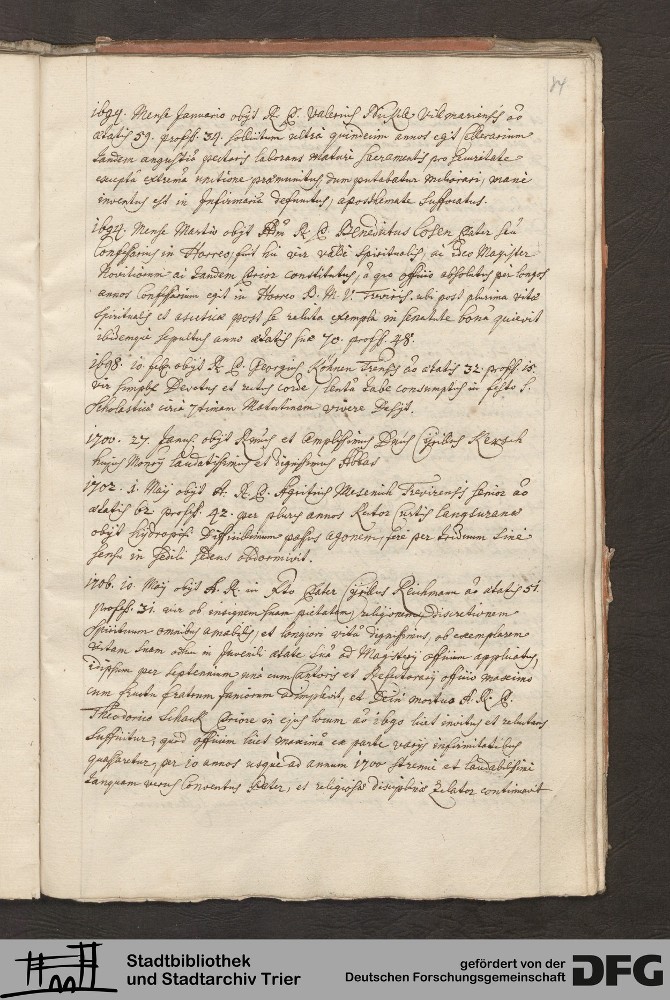 84
1694. Mense Januario obijt R. P. Valerius Vitmariensis ao
ætatis 59. profess. 39. sollicitum ultra quindecim annos egit cellerarium
tandem angustiâ pectoris laborans maturè sacramentis pro securitate
exceptâ extremâ unctione præmunitus, dum putabatur meliorari, mane
inventus est in Infirmaria defunctus, apostemate suffocatus.
1694. Mense Martio obijt R. P. Benedictus Cosen Pater seu
Confessarius in Horreo, fuit hic vir valdè spiritualis, ac ideo Magister
Novitiorum ac tandem Prior constitutus, à quo officio absolutus per longos
annos Confessarium egit in Horreo B. M. V. Treviris, ubi post plurima vitæ
spiritualis et asceticæ post se relicta exempla in senectute bonâ quievit
ibidemque sepultus anno ætatis suæ 70. profess. 48.
1698. 10. feb. obijt R. P. Georgius Köhnen Trevirs. ao ætatis 32. profess. 15.
vir simplex Devotus et rectus corde, lentâ tabe consumptus in festo S.
Scholasticæ circa 7timam Matutinam vivere desijt.
1700. 27. Januar. obijt Rmus et Amplissimus Dnus Cyrillus Kersch
hujus Monrij laudatissimus et dignissimus Abbas
1702. 1. Maij obijt A. R. P. Agritius Mesenich Trevirensis senior ao
ætatis 62. profess. 42. per plures annos Rector curtis Langsuranæ
obijt hydropicus Difficillimum passus agonem, ferè per triduum sine
sensu in sedili sedens obdormivit.
1706. 10. Maij obijt A. R. in Xto Pater Cyrillus Reichmann ao ætatis 51.
profess. 31. vir ob insignem suam pietatem, religionem, discretionem
spirituum omnibus amabilis, et longiori vitâ dignissimus, ob exemplarem
vitam suam adhuc in juvenili ætate suâ ad Magisterij officium applicatus,
ipsum per septennium unà cum Cantoris et Refectorarij officio maximo
cum fructu fratrum juniorum adimplevit, et Dein mortuo A. R. P.
Theodorico Schack Priore in ejus locum ao 1690 licet invitus et reluctans
sufficitur, quod officium licet maximâ ex parte varijs infirmitatibus
quassaretur, per 10 annos usque ad annum 1700 strenuè et laudabilissimè
tanquam verus Conventus Pater, et religiosæ disciplinæ Zelator continuavit
Stadtbibliothek
und Stadtarchiv Trier
gefördert von der
Deutschen Forschungsgemeinschaft
DFG